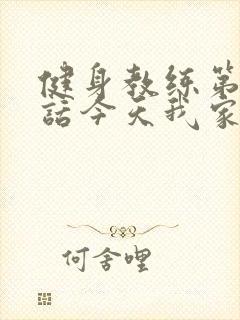 健身教练第
話今天我家
何舍哩